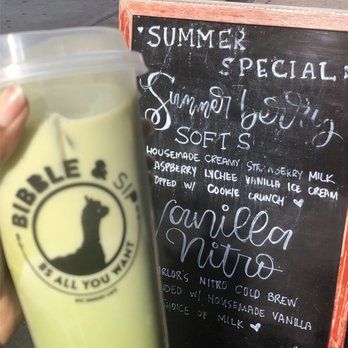 BIBBLE & SIP
AS ALL YOU WANT
SUMMER
SPECIAL
Summerberry
SOFTS
HOUSEMADE CREAMY STRAWBERRY MILK
RASPBERRY LYCHEE VANILLA ICE CREAM
TOPPED W/ COOKIE CRUNCH
Vanilla
Nitro
NITRO COLD BREW
W/ HOUSEMADE VANILLA
CHOICE OF MILK